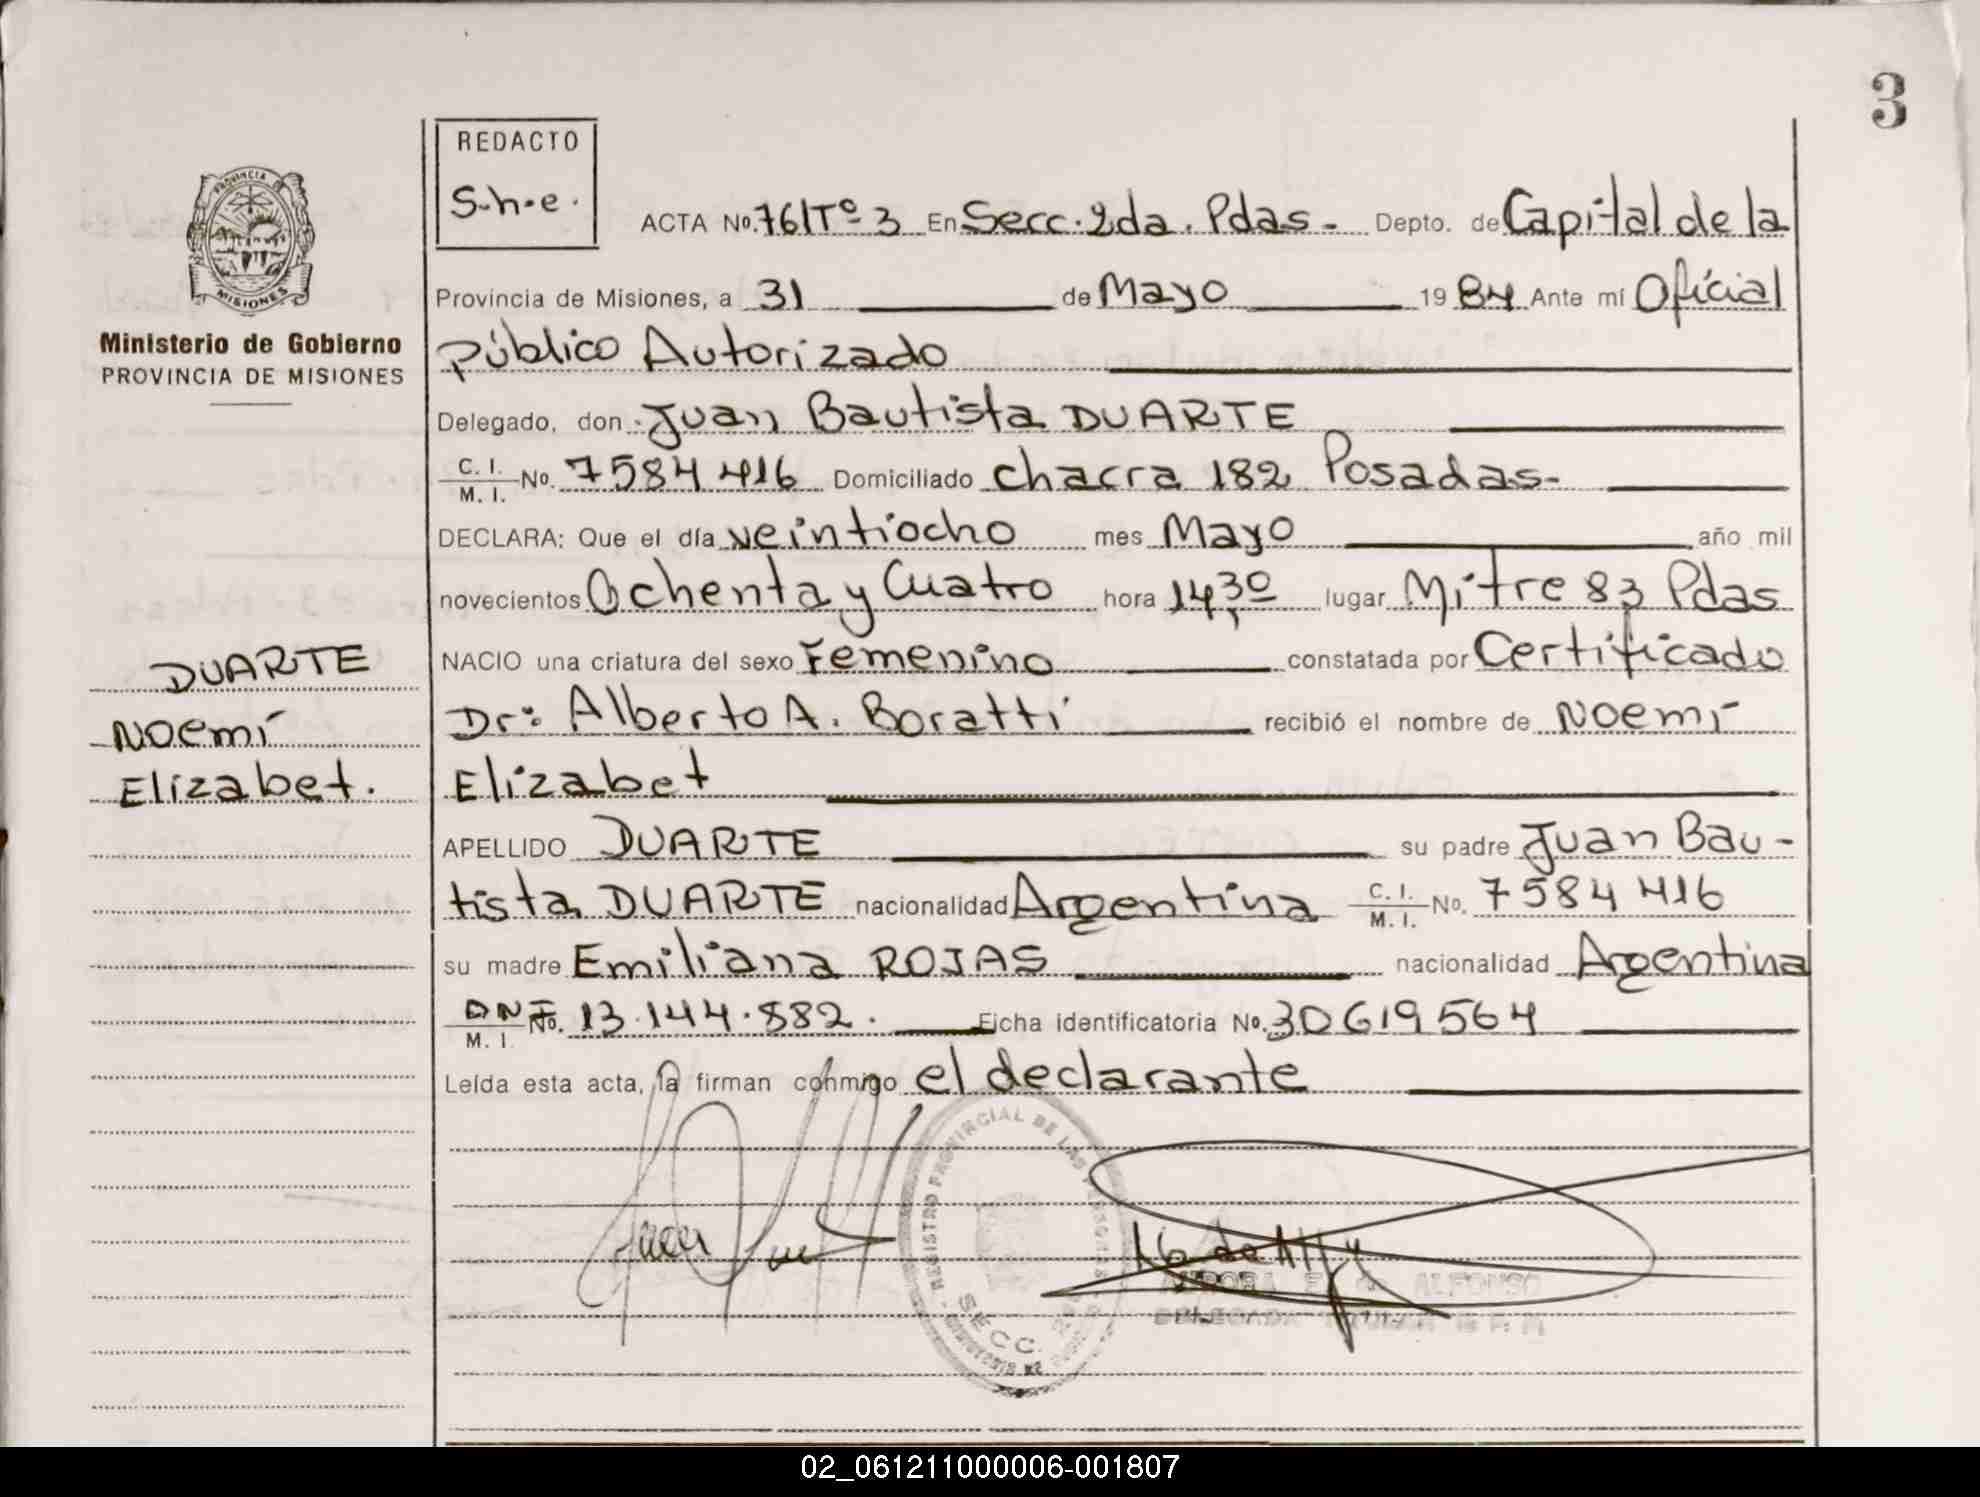 3
REDACTO
S-h-e.
PROVINCIA DE
MISIONES
Ministerio de Gobierno
PROVINCIA DE MISIONES
ACTA No. 761Tº-3 En Secc. 2da. Pdas- Depto. de Capital de la
Provincia de Misiones, a 31 de Mayo 1984 Ante mí Oficial
Público Autorizado
Delegado, don Juan Bautista DUARTE
C. I. / M. I. No. 7584416 Domiciliado Chacra 182 Posadas-
DECLARA: Que el día veintiocho mes Mayo año mil
novecientos Ochenta y Cuatro hora 14,30 lugar Mitre 83 Pdas
NACIO una criatura del sexo Femenino constatada por Certificado
Dr: Alberto A. Boratti recibió el nombre de Noemí
Elizabet
APELLIDO DUARTE su padre Juan Bau-
tista DUARTE nacionalidad Argentina C. I. / M. I. No. 7584416
su madre Emiliana ROJAS nacionalidad Argentina
DNI / M. I. No. 13.144.882. Ficha identificatoria No. 30619564
Leída esta acta, la firman conmigo el declarante
DUARTE
Noemí
Elizabet.
REGISTRO PROVINCIAL DE LAS PERSONAS
SECC.
ALFONSO
DELEGADA
02_061211000006-001807